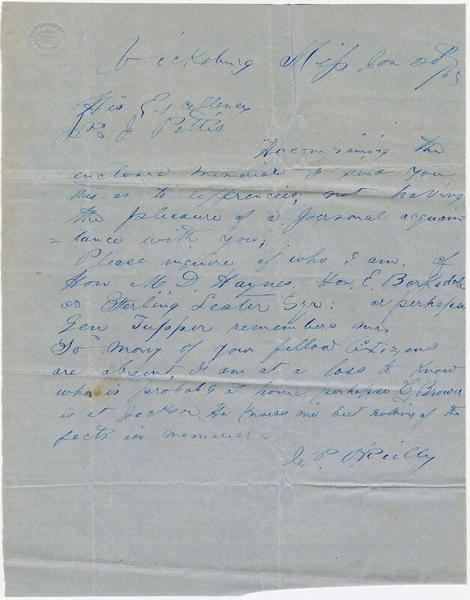 Vicksburg Miss Jan 20th
/63
His Excellency
J Pettis
Accompanying the
enclosed memorial I send you
this as to references, not having
the pleasure of a personal acquain
=tance with you;
Please inquire of who I am. of
Hon M. D. Haynes Hon. E. Barksdale
or Sterling Lester Esqr: or perhapse
Gen Tupper remembers me.
So many of your fellow Citizens
are absent, I am at a loss to know
who is probably at home perhapse Brown
is at Jackson. He knows me but nothing of the
facts in memorial.
P. O'Reilly